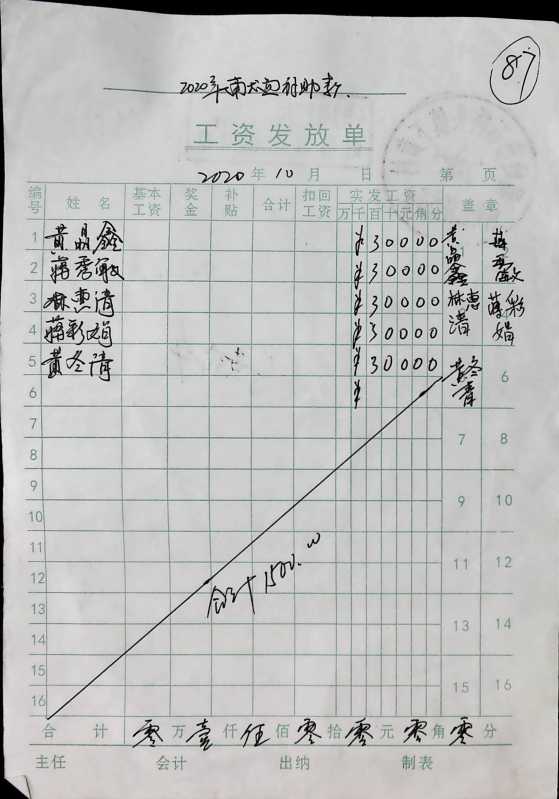 87
2020年
工资发放单
2020年10月 日 第 页
编号 姓名 基本工资 奖金 补贴 合计 扣回工资 实发工资 盖章
万千百十元角分
1 黄晶鑫 ¥30000 黄晶鑫 蒋秀敏
2 蒋秀敏 ¥30000
3 林惠清 ¥30000 林惠清 蒋彩娟
4 蒋彩娟 ¥30000
5 黄冬清 ¥30000 黄冬清 6
6 ¥
7 7 8
8
9 9 10
10
11 11 12
12 合计1500.00
13 13 14
14
15 15 16
16
合计 零万壹仟伍佰零拾零元零角零分
主任 会计 出纳 制表